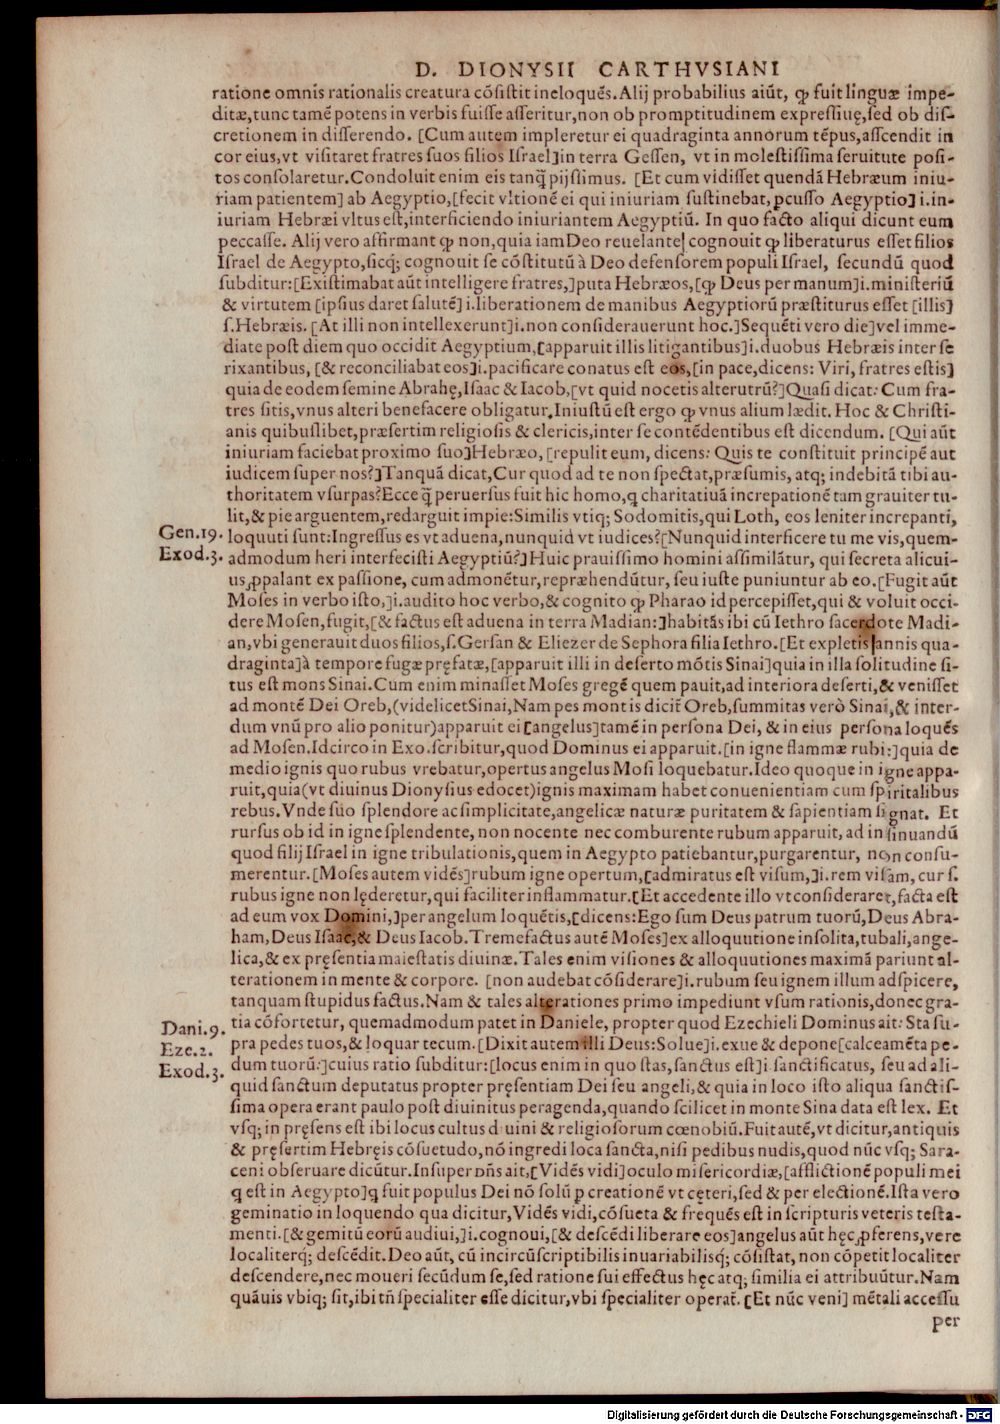 D. DIONYSII CARTHVSIANI
ratione omnis rationalis creatura cõſiſtit ineloqués. Alij probabilius aiũt, ꝙ fuit linguæ impe-
ditæ, tunc tamé potens in verbis fuiſſe aſſeritur, non ob promptitudinem expreſſiuę, ſed ob diſ-
cretionem in diſſerendo. [Cum autem impleretur ei quadraginta annorum tẽpus, aſſcendit in
cor eius, vt viſitaret fratres ſuos filios Iſrael] in terra Geſſen, vt in moleſtiſſima ſeruitute poſi-
tos conſolaretur. Condoluit enim eis tanq̃ pijſſimus. [Et cum vidiſſet quendã Hebræum iniu-
riam patientem] ab Aegyptio, [fecit vltionẽ ei qui iniuriam ſuſtinebat, ꝑcuſſo Aegyptio] i. in-
iuriam Hebræi vltus eſt, interficiendo iniuriantem Aegyptiũ. In quo facto aliqui dicunt eum
peccaſſe. Alij vero affirmant ꝙ non, quia iam Deo reuelante cognouit ꝙ liberaturus eſſet filios
Iſrael de Aegypto, ſicq; cognouit ſe cõſtitutũ à Deo defenſorem populi Iſrael, ſecundũ quod
ſubditur: [Exiſtimabat aũt intelligere fratres,] puta Hebræos, [ꝙ Deus per manum] i. miniſteriũ
& virtutem [ipſius daret ſalutẽ] i. liberationem de manibus Aegyptiorũ præſtiturus eſſet [illis]
ſ. Hebræis. [At illi non intellexerunt] i. non conſiderauerunt hoc.] Sequẽti vero die] vel imme-
diate poſt diem quo occidit Aegyptium, [apparuit illis litigantibus] i. duobus Hebræis inter ſe
rixantibus, [& reconciliabat eos] i. pacificare conatus eſt eos, [in pace, dicens: Viri, fratres eſtis]
quia de eodem ſemine Abrahę, Iſaac & Iacob, [vt quid nocetis alterutrũ?] Quaſi dicat: Cum fra-
tres ſitis, vnus alteri benefacere obligatur. Iniuſtũ eſt ergo ꝙ vnus alium lædit. Hoc & Chriſti-
anis quibuſlibet, præſertim religioſis & clericis, inter ſe contẽdentibus eſt dicendum. [Qui aũt
iniuriam faciebat proximo ſuo] Hebræo, [repulit eum, dicens: Quis te conſtituit principẽ aut
iudicem ſuper nos?] Tanquã dicat, Cur quod ad te non ſpectat, præſumis, atq; indebitã tibi au-
thoritatem vſurpas? Ecce q̃ peruerſus fuit hic homo, q charitatiuã increpationẽ tam grauiter tu-
lit, & pie arguentem, redarguit impie: Similis vtiq; Sodomitis, qui Loth, eos leniter increpanti,
Gen. 19. loquuti ſunt: Ingreſſus es vt aduena, nunquid vt iudices? [Nunquid interficere tu me vis, quem-
Exod. 3. admodum heri interfeciſti Aegyptiũ?] Huic prauiſſimo homini aſſimilãtur, qui ſecreta alicui-
us ꝓpalant ex paſſione, cum admonẽtur, repræhendũtur, ſeu iuſte puniuntur ab eo. [Fugit aũt
Moſes in verbo iſto,] i. audito hoc verbo, & cognito ꝙ Pharao id percepiſſet, qui & voluit occi-
dere Moſen, fugit, [& factus eſt aduena in terra Madian:] habitãs ibi cũ Iethro ſacerdote Madi-
an, vbi generauit duos filios, ſ. Gerſan & Eliezer de Sephora filia Iethro. [Et expletis annis qua-
draginta] à tempore fugæ pręfatæ, [apparuit illi in deſerto mõtis Sinai] quia in illa ſolitudine ſi-
tus eſt mons Sinai. Cum enim minaſſet Moſes gregẽ quem pauit, ad interiora deſerti, & veniſſet
ad montẽ Dei Oreb, (videlicet Sinai, Nam pes montis dicit̃ Oreb, ſummitas verò Sinai, & inter-
dum vnũ pro alio ponitur) apparuit ei [angelus] tamẽ in perſona Dei, & in eius perſona loqués
ad Moſen. Idcirco in Exo. ſcribitur, quod Dominus ei apparuit. [in igne flammæ rubi:] quia de
medio ignis quo rubus vrebatur, opertus angelus Moſi loquebatur. Ideo quoque in igne appa-
ruit, quia (vt diuinus Dionyſius edocet) ignis maximam habet conuenientiam cum ſpiritalibus
rebus. Vnde ſuo ſplendore ac ſimplicitate, angelicæ naturæ puritatem & ſapientiam ſignat. Et
rurſus ob id in igne ſplendente, non nocente nec comburente rubum apparuit, ad inſinuandũ
quod filij Iſrael in igne tribulationis, quem in Aegypto patiebantur, purgarentur, non conſu-
merentur. [Moſes autem vidẽs] rubum igne opertum, [admiratus eſt viſum,] i. rem viſam, cur ſ.
rubus igne non lęderetur, qui faciliter inflammatur. [Et accedente illo vt conſideraret, facta eſt
ad eum vox Domini,] per angelum loquẽtis, [dicens: Ego ſum Deus patrum tuorũ, Deus Abra-
ham, Deus Iſaac, & Deus Iacob. Tremefactus autẽ Moſes] ex alloquutione inſolita, tubali, ange-
lica, & ex pręſentia maieſtatis diuinæ. Tales enim viſiones & alloquutiones maximã pariunt al-
terationem in mente & corpore. [non audebat cõſiderare] i. rubum ſeu ignem illum adſpicere,
tanquam ſtupidus factus. Nam & tales alterationes primo impediunt vſum rationis, donec gra-
Dani. 9. tia cõfortetur, quemadmodum patet in Daniele, propter quod Ezechieli Dominus ait: Sta ſu-
Eze. 2. pra pedes tuos, & loquar tecum. [Dixit autem illi Deus: Solue] i. exue & depone [calceamẽta pe-
Exod. 3. dum tuorũ:] cuius ratio ſubditur: [locus enim in quo ſtas, ſanctus eſt] i ſanctificatus, ſeu ad ali-
quid ſanctum deputatus propter pręſentiam Dei ſeu angeli, & quia in loco iſto aliqua ſanctiſ-
ſima opera erant paulo poſt diuinitus peragenda, quando ſcilicet in monte Sina data eſt lex. Et
vſq; in pręſens eſt ibi locus cultus d uini & religioſorum cœnobiũ. Fuit autẽ, vt dicitur, antiquis
& pręſertim Hebręis cõſuetudo, nõ ingredi loca ſancta, niſi pedibus nudis, quod nũc vſq; Sara-
ceni obſeruare dicũtur. Inſuper dñs ait, [Vidẽs vidi] oculo miſericordiæ, [afflictionẽ populi mei
q eſt in Aegypto] q fuit populus Dei nõ ſolũ ꝑ creationẽ vt cęteri, ſed & per electionẽ. Iſta vero
geminatio in loquendo qua dicitur, Vidẽs vidi, cõſueta & frequẽs eſt in ſcripturis veteris teſta-
menti. [& gemitũ eorũ audiui,] i. cognoui, [& deſcẽdi liberare eos] angelus aũt hęc ꝓferens, vere
localiterq; deſcẽdit. Deo aũt, cũ incircũſcriptibilis inuariabilisq; cõſiſtat, non cõpetit localiter
deſcendere, nec moueri ſecũdum ſe, ſed ratione ſui effectus hęc atq; ſimilia ei attribuũtur. Nam
quãuis vbiq; ſit, ibi tñ ſpecialiter eſſe dicitur, vbi ſpecialiter operat̃. [Et nũc veni] mẽtali acceſſu
per
Digitalisierung gefördert durch die Deutsche Forschungsgemeinschaft - DFG